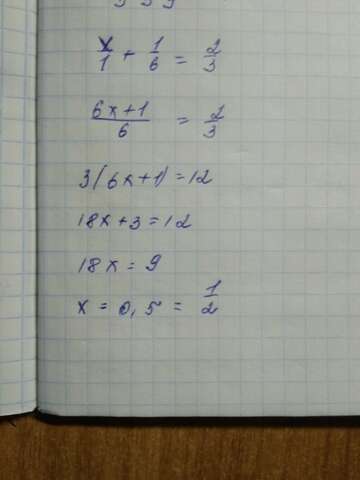 x/1 + 1/6 = 2/3
6x+1/6 = 2/3
3(6x+1)=12
18x+3=12
18x=9
x = 0,5 = 1/2